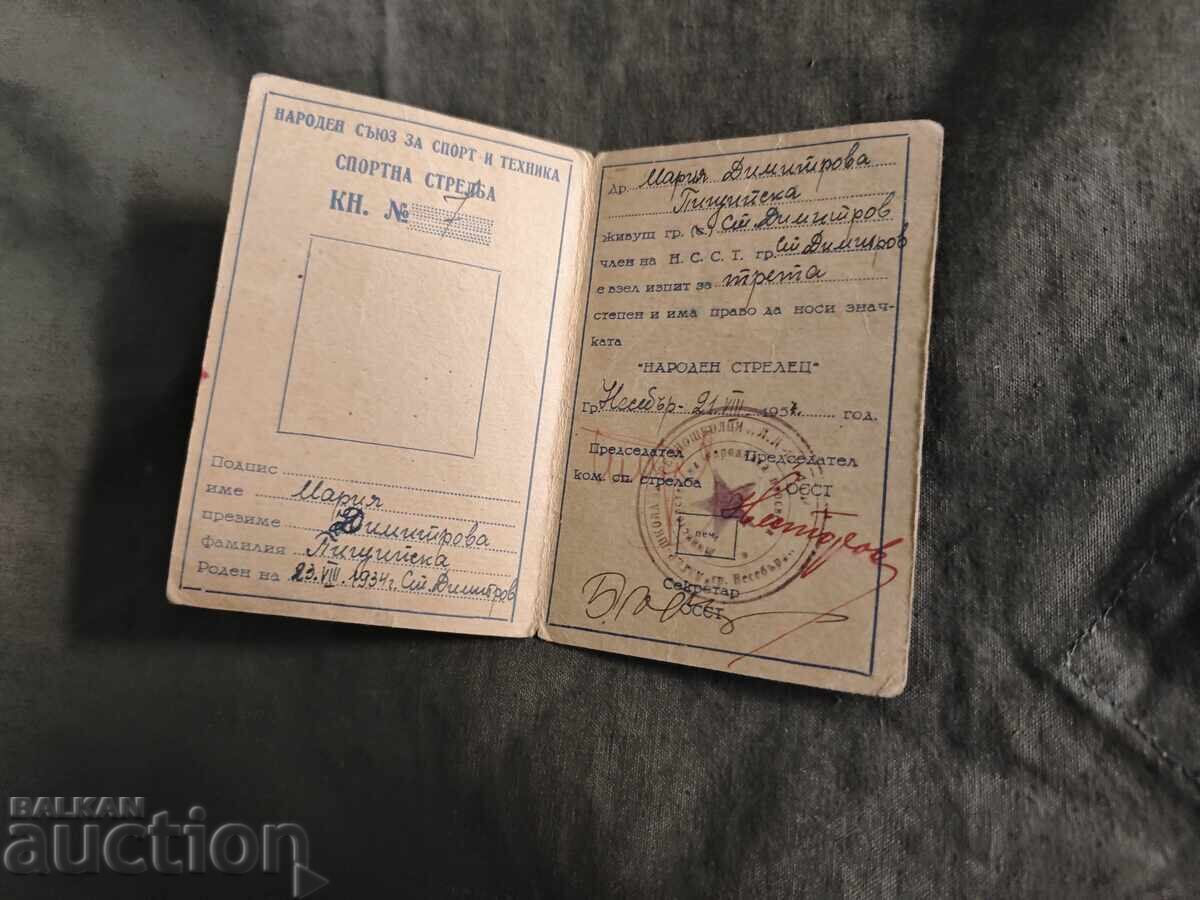 НАРОДЕН СЪЮЗ ЗА СПОРТ И ТЕХНИКА
СПОРТНА СТРЕЛБА
КН. № 7
Подпис
име Мария
презиме Димитрова
фамилия Пищийска
Роден на 23.VIII.1934 г. Ст. Димитров
Др. Мария Димитрова
Пищийска
живущ гр. (с.) Ст. Димитров
член на Н. С. С. Т. гр. Ст. Димитров
е взел изпит за трета
степен и има право да носи знач-
ката
"НАРОДЕН СТРЕЛЕЦ"
Гр. Несебър - 21.VIII. 195 год.
Председател
ком. сп. стрелба
Председател
ОССТ
Секретар
ОССТ
гр. Несебър
BALKAN
auction